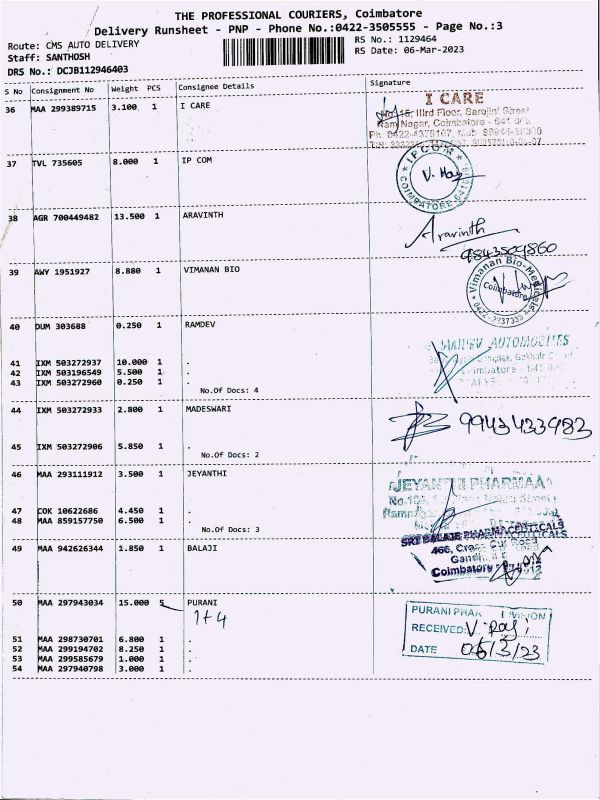 THE PROFESSIONAL COURIERS, Coimbatore
Delivery Runsheet - PNP - Phone No.:0422-3505555 - Page No.:3
Route: CMS AUTO DELIVERY
RS No.: 1129464
Staff: SANTHOSH
RS Date: 06-Mar-2023
DRS No.: DCJB112946403
S No Consignment No Weight PCS Consignee Details Signature
36 MAA 299389715 3.100 1 I CARE
I CARE
IIIrd Floor, Sarojini Street
Ram Nagar, Coimbatore - 641
37 TVL 735605 8.000 1 IP COM
IPCOM
COIMBATORE
38 AGR 700449482 13.500 1 ARAVINTH
Aravinth
9843509860
39 AWY 1951927 8.880 1 VIMANAN BIO
Vimanan Bio-Medicals
Coimbatore
40 DUM 303688 0.250 1 RAMDEV
AUTOMOBILES
41 IXM 503272937 10.000 1 .
42 IXM 503196549 5.500 1 .
43 IXM 503272960 0.250 1 .
No.Of Docs: 4
44 IXM 503272933 2.800 1 MADESWARI
9943433983
45 IXM 503272906 5.850 1 .
No.Of Docs: 2
46 MAA 293111912 3.500 1 JEYANTHI
JEYANTHI PHARMAA
47 COK 10622686 4.450 1 .
48 MAA 859157750 6.500 1 .
No.Of Docs: 3
SRI BALAJI PHARMACEUTICALS
49 MAA 942626344 1.850 1 BALAJI
466, Cross Cut Road
Coimbatore
50 MAA 297943034 15.000 5 PURANI
1+4
PURANI PHAR DIVISION
RECEIVED:
DATE 06/3/23
51 MAA 298730701 6.800 1 .
52 MAA 299194702 8.250 1 .
53 MAA 299585679 1.000 1 .
54 MAA 297940798 3.000 1 .